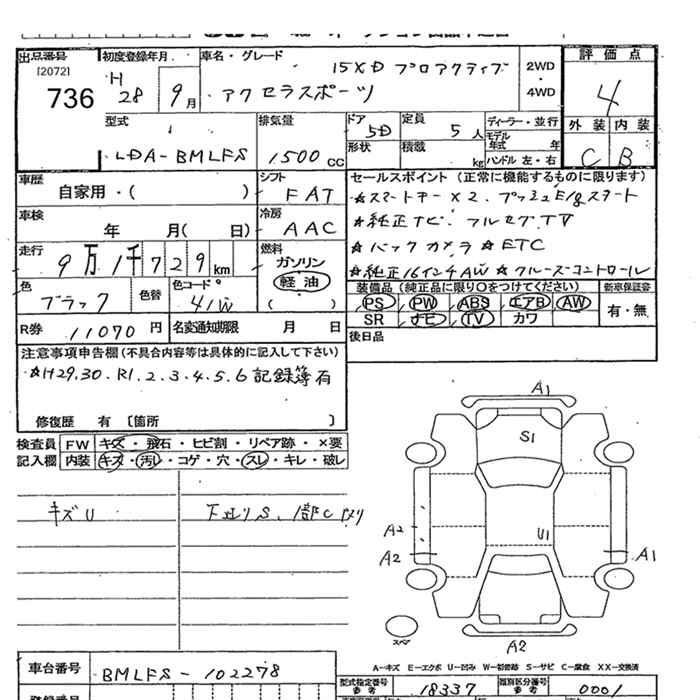 出品番号 [2072] 736
初度登録年月 H28年9月
車名・グレード 15XD プロアクティブ
アクセラスポーツ
2WD・4WD
評価点 4
外装 内装
C B
型式 LDA-BMLFS
排気量 1500cc
ドア 5D
形状
定員 5人
積載 kg
ディーラー・並行
モデル年式 年
ハンドル 左・右
車歴 自家用・( )
シフト FAT
車検 年 月(日)
冷房 AAC
走行 9万1千729km
燃料 ガソリン 軽油 ( )
色 ブラック
色替
色コード 41W
R券 11070円
名変通知期限 月 日
セールスポイント(正常に機能するものに限ります)
☆スマートキー×2. プッシュE/gスタート
☆純正ナビ. フルセグTV
☆バックカメラ☆ETC
☆純正16インチAW☆クルーズコントロール
装備品(純正品に限り○をつけてください) 新車保証書
PS PW ABS エアB AW 有・無
SR ナビ TV カワ
後日品
注意事項申告欄(不具合内容等は具体的に記入して下さい)
☆H29.30. R1.2.3.4.5.6記録簿有
修復歴 有 〔箇所 〕
検査員 FW キズ・飛石・ヒビ割・リペア跡・×要
記入欄 内装 キズ・汚レ・コゲ・穴・スレ・キレ・破レ
キズU
下廻りS.
A1
S1
A2
U1
A2
A1
A2
スペア
A-キズ E-エクボ U-凹み W-補修跡 S-サビ C-腐食 XX-交換済
車台番号 BMLFS-102278
型式指定番号 参考 18337
類別区分番号 参考 0001